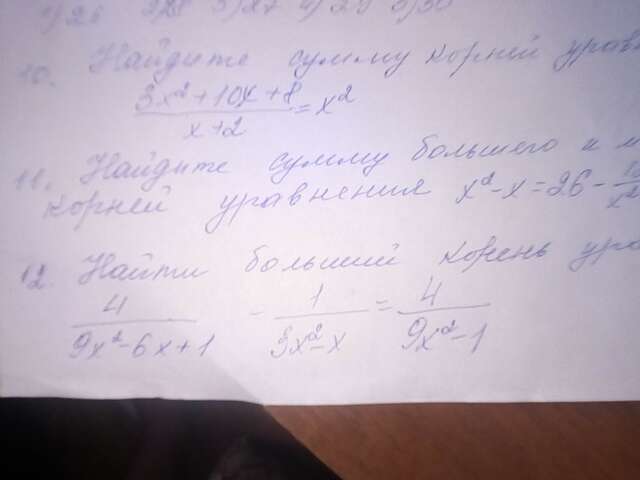 3) 27 4) 29 5) 30
10. Найдите сумму корней
3x²+10x+8 / x+2 = x²
11. Найдите сумму большего и
корней уравнения x²-x=26-
12. Найти больший корень
4 / 9x²-6x+1 - 1 / 3x²-x = 4 / 9x²-1